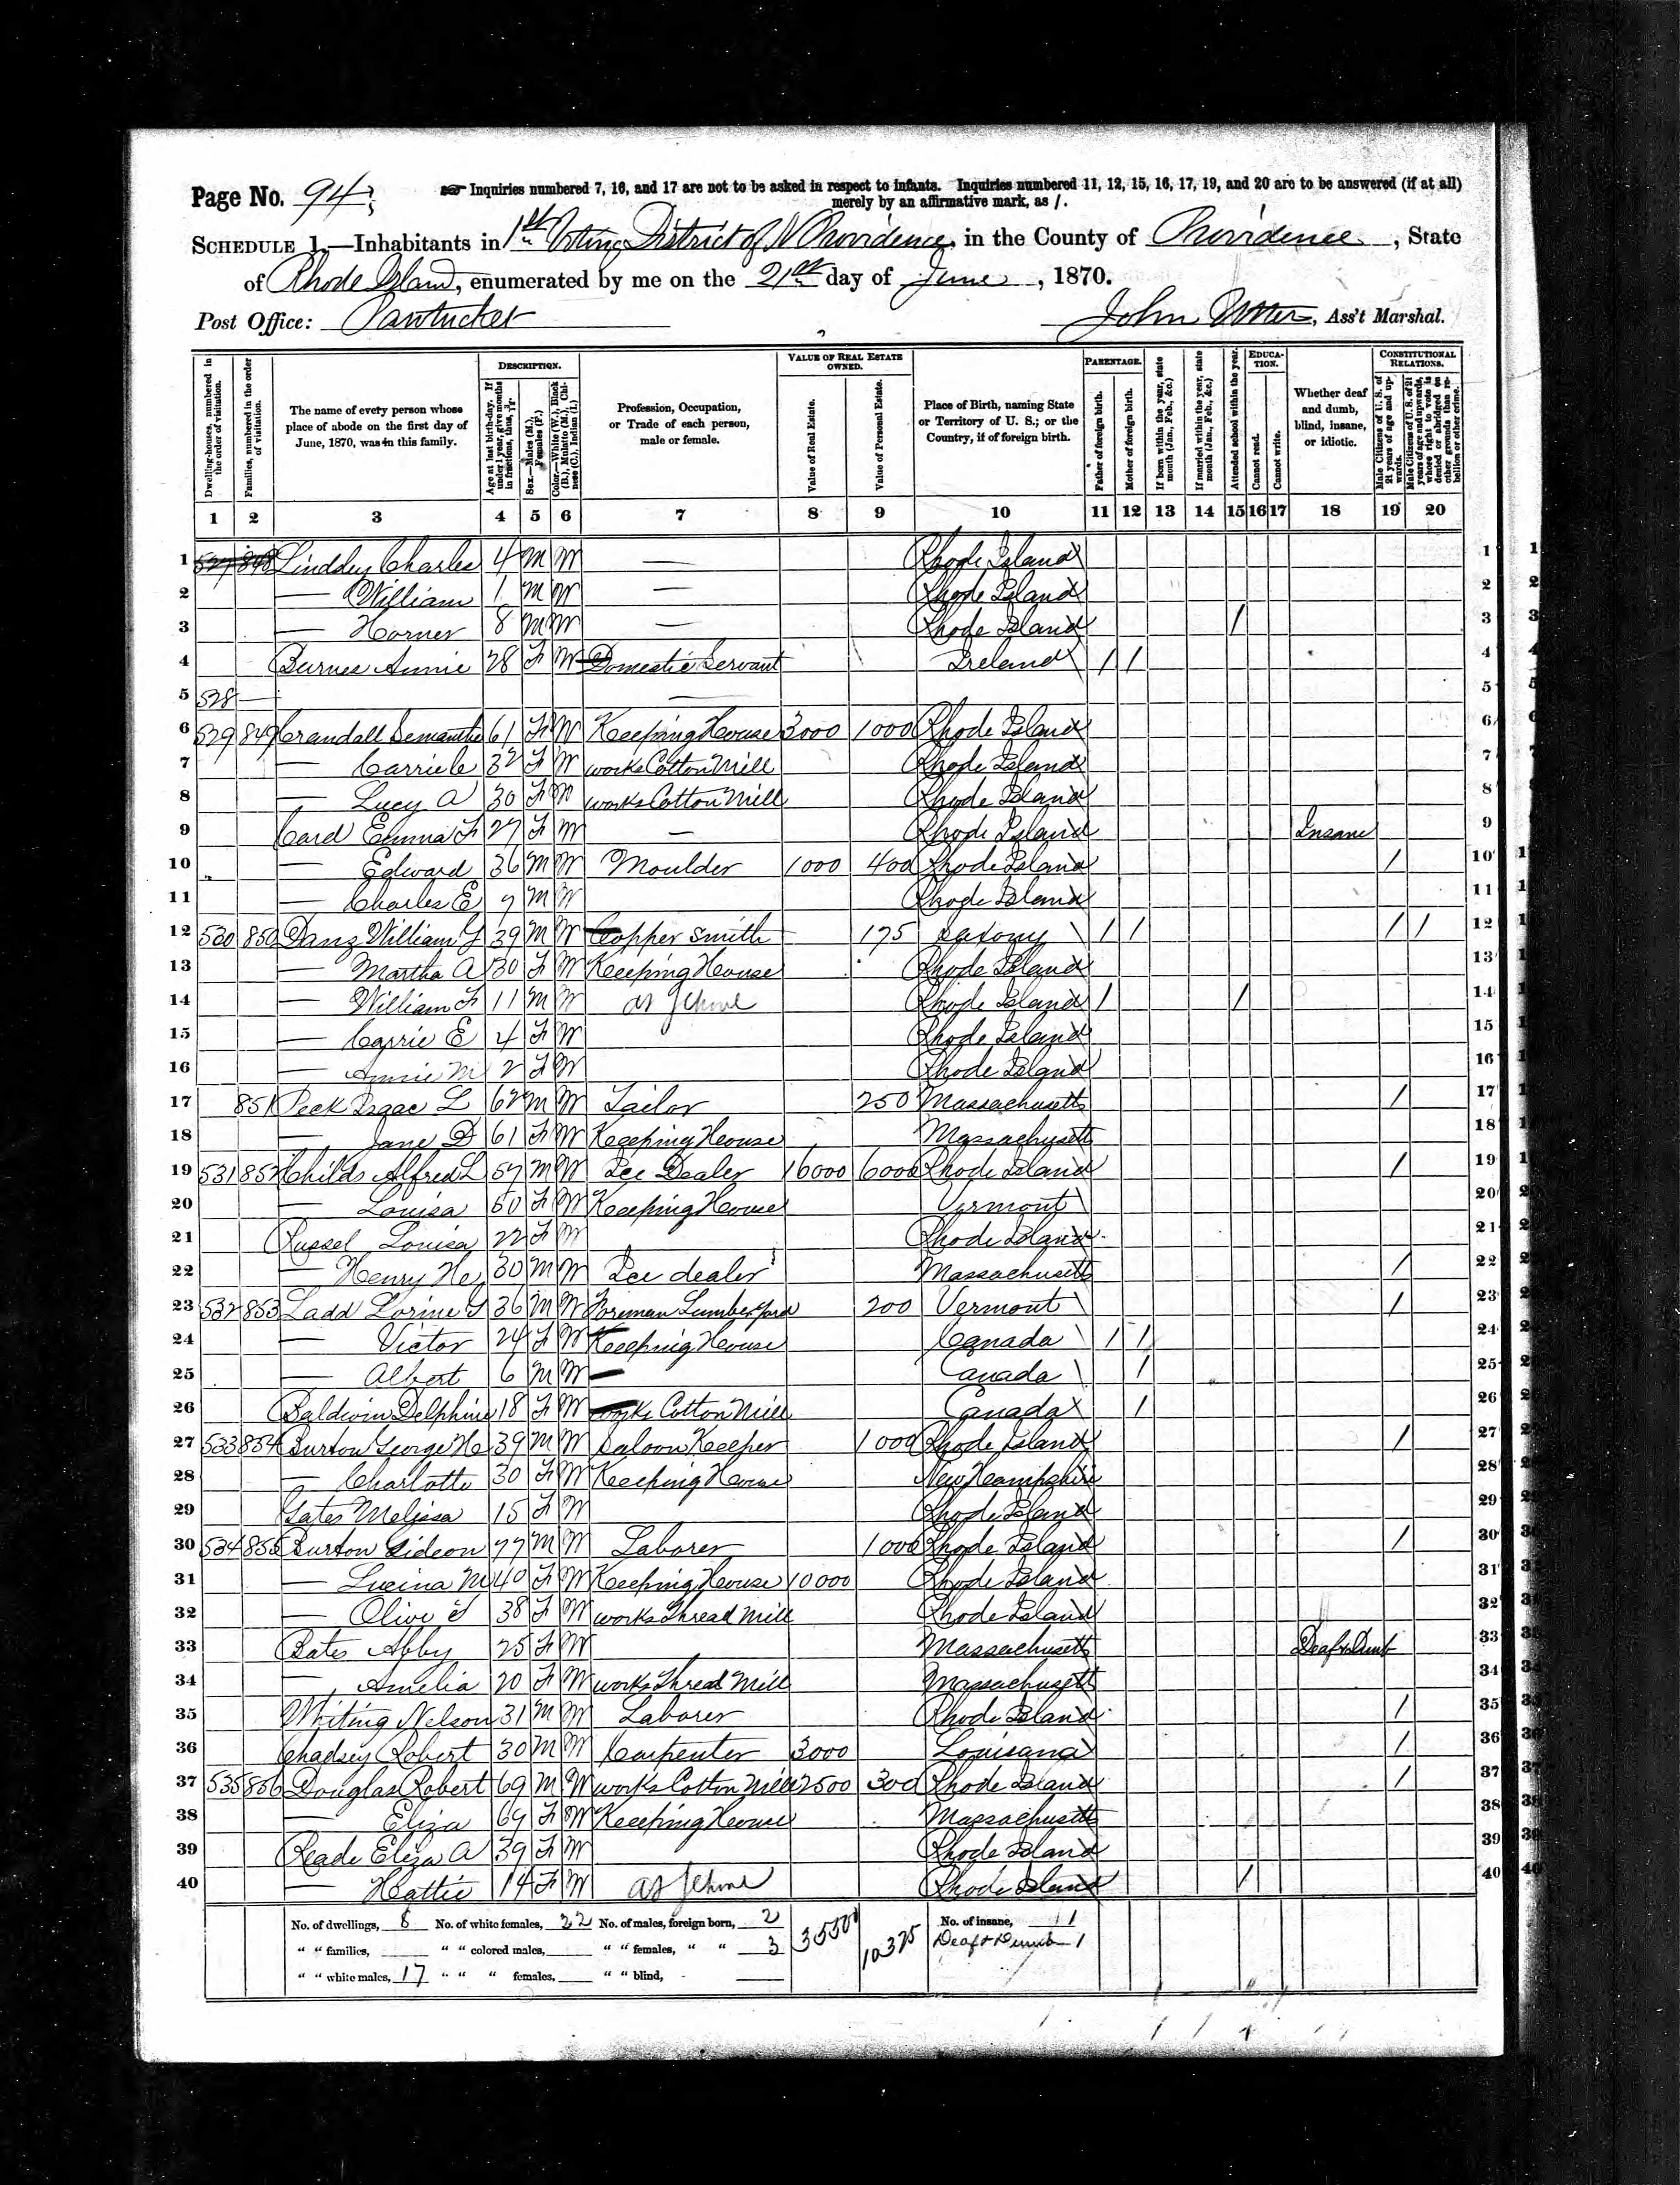 Page No. 94
Inquiries numbered 7, 16, and 17 are not to be asked in respect to infants. Inquiries numbered 11, 12, 15, 16, 17, 19, and 20 are to be answered (if at all)
merely by an affirmative mark, as /.
SCHEDULE 1.—Inhabitants in 1st Voting District of N Providence, in the County of Providence, State
of Rhode Island, enumerated by me on the 21st day of June, 1870.
Post Office: Pawtucket
John, Ass't Marshal.
Dwelling-houses, numbered in the order of visitation.
Families, numbered in the order of visitation.
The name of every person whose place of abode on the first day of June, 1870, was in this family.
DESCRIPTION.
Age at last birth-day. If under 1 year, give months in fractions, thus, 3/12
Sex.—Males (M.), Females (F.)
Color.—White (W.), Black (B.), Mulatto (M.), Chinese (C.), Indian (I.)
Profession, Occupation, or Trade of each person, male or female.
VALUE OF REAL ESTATE OWNED.
Value of Real Estate.
Value of Personal Estate.
Place of Birth, naming State or Territory of U. S.; or the Country, if of foreign birth.
PARENTAGE.
Father of foreign birth.
Mother of foreign birth.
If born within the year, state month (Jan., Feb., &c.)
If married within the year, state month (Jan., Feb., &c.)
Attended school within the year.
EDUCATION.
Cannot read.
Cannot write.
Whether deaf and dumb, blind, insane, or idiotic.
CONSTITUTIONAL RELATIONS.
Male Citizens of U. S. of 21 years of age and upwards.
Male Citizens of U. S. of 21 years of age and upwards, whose right to vote is denied or abridged on other grounds than rebellion or other crime.
1 2 3 4 5 6 7 8 9 10 11 12 13 14 15 16 17 18 19 20
1 527 848 Linddey Charles 4 M W — Rhode Island 1
2 — William 1 M W — Rhode Island 2
3 — Horner 8 M W — Rhode Island / 3
4 Burnes Annie 28 F W Domestic Servant Ireland / / 4
5 528 — — 5
6 529 849 Crandall Semantha 61 F W Keeping House 3000 1000 Rhode Island 6
7 — Carrie C 32 F W works Cotton Mill Rhode Island 7
8 — Lucy A 30 F W works Cotton Mill Rhode Island 8
9 Card Emma F 27 F W — Rhode Island Insane 9
10 — Edward 36 M W Moulder 1000 400 Rhode Island / 10
11 — Charles E 9 M W Rhode Island 11
12 530 850 Danz William G 39 M W Copper Smith 175 Saxony / / / / 12
13 — Martha A 30 F W Keeping House Rhode Island 13
14 — William F 11 M W at School Rhode Island / / 14
15 — Carrie E 4 F W Rhode Island 15
16 — Annie M 2 F W Rhode Island 16
17 851 Peck Isaac L 62 M W Tailor 250 Massachusetts / 17
18 — Jane D 61 F W Keeping House Massachusetts 18
19 531 852 Childs Alfred L 57 M W Ice Dealer 16000 6000 Rhode Island / 19
20 — Louisa 50 F W Keeping House Vermont 20
21 Russel Louisa 22 F W Rhode Island 21
22 — Henry He 30 M W Ice dealer Massachusetts / 22
23 532 853 Ladd Lorine G 36 M W Foreman Lumber Yard 200 Vermont / 23
24 — Victor 24 F W Keeping House Canada / / 24
25 — Albert 6 M W — Canada / 25
26 Baldwin Delphine 18 F W works Cotton Mill Canada / 26
27 533 854 Burton George H 39 M W Saloon Keeper 1000 Rhode Island / 27
28 — Charlotte 30 F W Keeping House New Hampshire 28
29 Gates Melissa 15 F W Rhode Island 29
30 534 855 Burton Gideon 77 M W Laborer 1000 Rhode Island / 30
31 — Lucina M 40 F W Keeping House 10000 Rhode Island 31
32 — Olive S 38 F W works Thread Mill Rhode Island 32
33 Bates Abby 25 F W Massachusetts Deaf & Dumb 33
34 — Amelia 20 F W works Thread Mill Massachusetts 34
35 Whiting Nelson 31 M W Laborer Rhode Island / 35
36 Chadsey Robert 30 M W Carpenter 3000 Louisana / 36
37 535 856 Douglas Robert 69 M W works Cotton Mill 2500 300 Rhode Island / 37
38 — Eliza 69 F W Keeping House Massachusetts 38
39 Reade Eliza A 39 F W Rhode Island 39
40 — Hattie 14 F W at School Rhode Island / 40
No. of dwellings, 8 No. of white females, 22 No. of males, foreign born, 2 35500 10375 No. of insane, 1
" " families, " " colored males, " " females, " " 3 Deaf & Dumb 1
" " white males, 17 " " " females, " " blind,